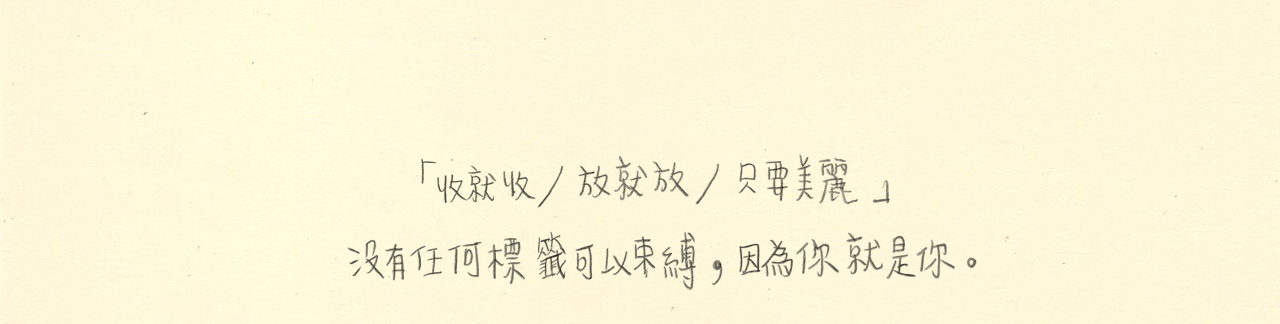 「收就收／放就放／只要美麗」
沒有任何標籤可以束縛，因為你就是你。